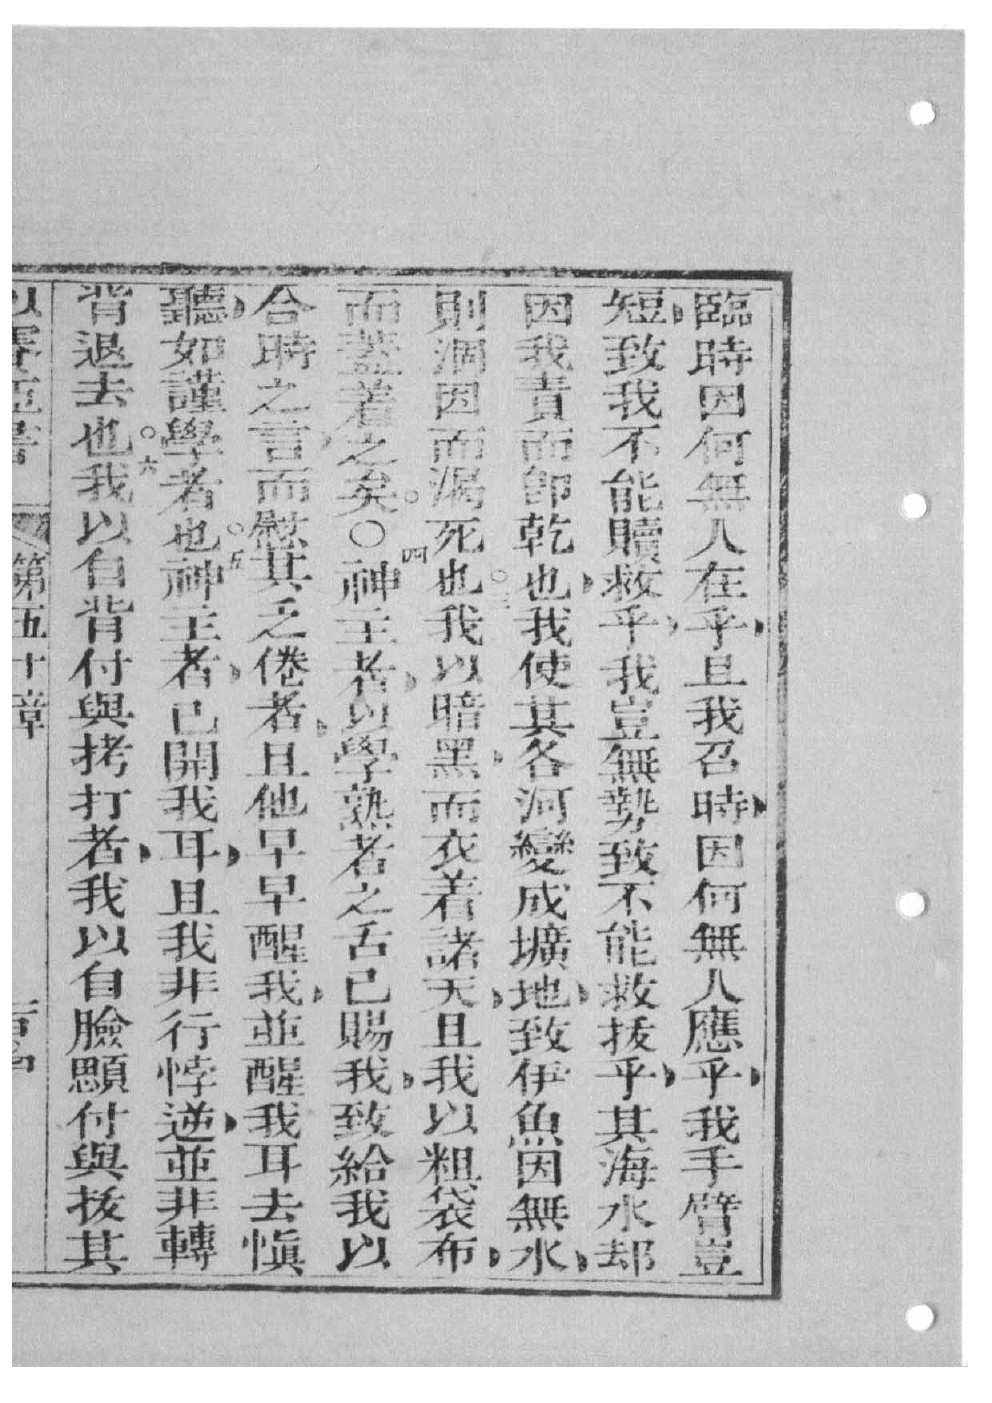 臨時因何無人在乎且我召時因何無人應乎我手臂豈
短致我不能贖救乎我豈無勢致不能救拔乎其海水却
因我責而即乾也我使其各河變成壙地致伊魚因無水
則涸因而渴死也○三我以暗黑而衣着諸天且我以粗袋布
而蓋着之矣○○四神主者以學熟者之舌已賜我致給我以
合時之言而慰其乏倦者且他早早醒我並醒我耳去慎
聽如謹學者也○五神主者已開我耳且我非行悖逆並非轉
背退去也○六我以自背付與拷打者我以自臉顯付與拔其
以賽亞書 第五十章